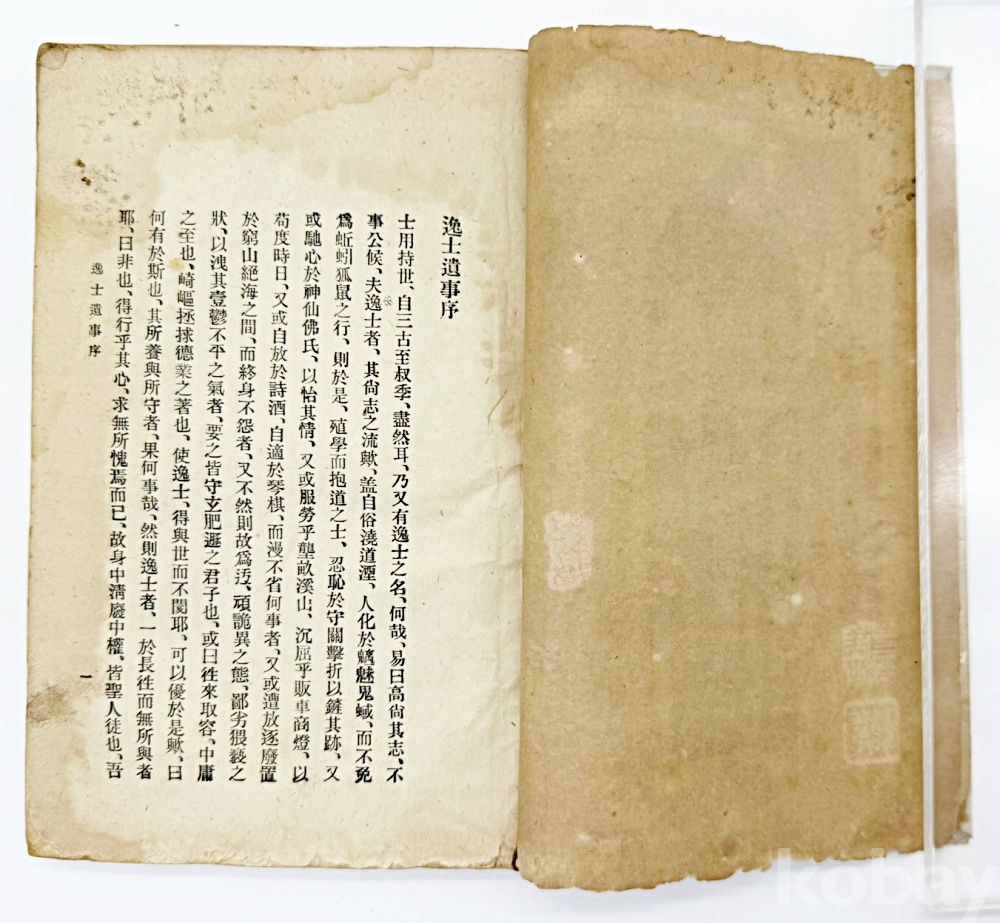 逸士遺事序
士用持世、自三古至叔季、盡然耳、乃又有逸士之名、何哉、易曰高尙其志、不
事公候、夫逸士者、其尙志之流歟、盖自俗澆道湮、人化於魑魅鬼蜮、而不免
爲蚯蚓狐鼠之行、則於是、殖學而抱道之士、忍恥於守關擊折以鏟其跡、又
或馳心於神仙佛氏、以怡其情、又或服勞乎壟畝溪山、沉屈乎販車商燈、以
苟度時日、又或自放於詩酒、自適於琴棋、而漫不省何事者、又或遭放逐廢置
於窮山絕海之間、而終身不怨者、又不然則故爲汚、頑詭異之態、鄙劣猥褻之
狀、以洩其壹鬱不平之氣者、要之皆守玄肥遯之君子也、或曰徃來取容、中庸
之至也、崎嶇拯捄德業之著也、使逸士、得與世而不閡耶、可以優於是歟、曰
何有於斯也、其所養與所守者、果何事哉、然則逸士者、一於長徃而無所與者
耶、曰非也、得行乎其心、求無所愧焉而已、故身中淸廢中權、皆聖人徒也、吾
逸士遺事序
一
kobay